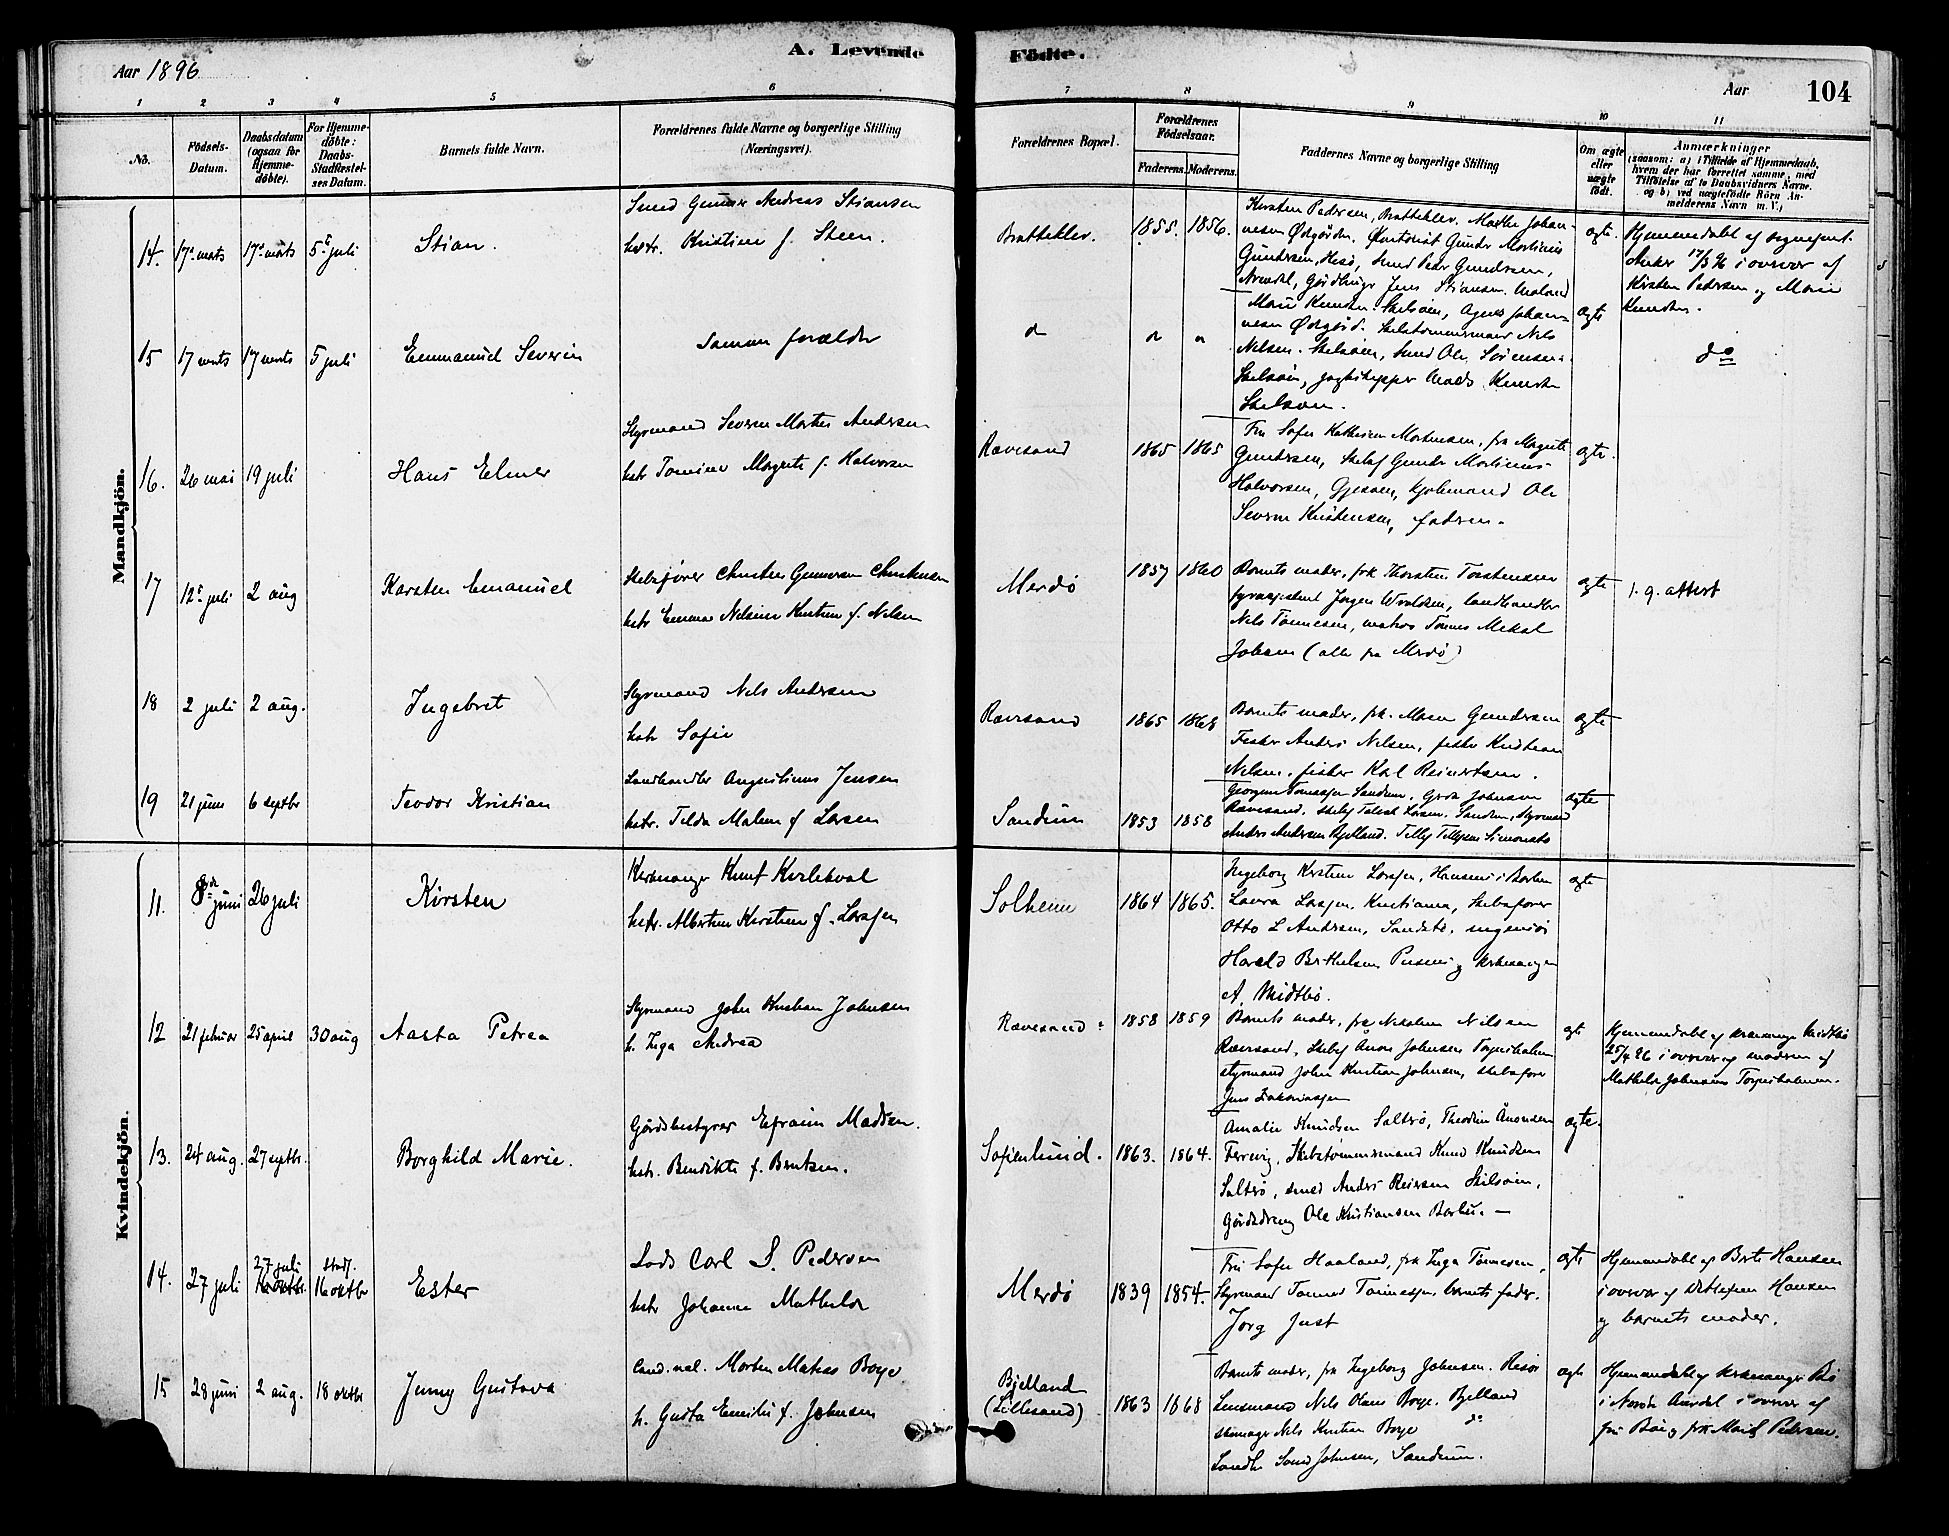 A. Levende Födte.
Aar 1896
Aar 104
1 2 3 4 5 6 7 8 9 10 11
No.
Födsels-Datum.
Daabsdatum (ogsaa for Hjemme-döbte).
For Hjemme-döbte: Daabs-Stadfæstel-ses Datum.
Barnets fulde Navn.
Forældrenes fulde Navne og borgerlige Stilling (Næringsvei).
Forældrenes Bopæl.
Forældrenes Födselsaar.
Faderens. Moderens.
Faddernes Navne og borgerlige Stilling
Om ægte eller uægte födt.
Anmærkninger (saasom: a) i Tilfælde af Hjemmedaab, hvem der har forrettet samme, med Tilföielse af to Daabsvidners Navne. og b) ved uægtefödte Börn An-melderens Navn m. V.)
Mandkjön.
14. 17de marts 17de marts 5te juli Stian.
Smed Gunnar Andreas Stiansen
hstr. Kristine f. Steen.
Brattekler. 1855. 1856.
Kirsten Pedersen, Brattekler, Marthe Johan-
nesen Ødegården. Gunder Mortinius
Gundersen, Hisø, Smed Peder Gundersen,
Arendal, Jens Stiansen.
ægte.
17/3 96 i overvær af
Kirsten Pedersen og Marie
Knudsen.
15 17 marts 17 marts 5 juli Emmanuel Severin
samme forælder
Marie Knudsen Skilsøen, Agnes Johan-
nesen Ødegård. Skibstømmermand Nils
Nilsen. Skilsøen, Smed Ole Sørensen
Skilsøen, Mads Knudsen
Skilsøen.
ægte
do
16. 26 mai 19 juli Hans Elmer
Styrmand Severin Morten Andersen
hstr Tomine Margrete f. Halvorsen
Rævesand 1865 1865
Fru Sofie Kathrine Mortensen, frk Margrete
Gundersen, Gunder Mortinius
Halvorsen, Gjesøen, Ole
Severin Kristensen, faderen.
ægte.
17 12te juli 2 aug Karsten Emanuel
Skibsfører Christen Gunnersen Christensen
hstr Emma Nilsine Kristine f. Nilsen
Merdø 1857 1860
Barnets moder, frk Thorstine Torstensen
fyrassistent Jørgen, landhandler
Nils Tønnesen, matros Tønnes Mikal
Johnsen (alle fra Merdø)
ægte
f. g. attest
18 2 juli 2 aug. Ingebret
Styrmand Nils Andersen
hstr Sofie
Rævesand 1865 1868
Barnets moder, frk. Maren Gundersen
Fisker Anders Nilsen, fisker Kristian
Nilsen, fisker Karl Reinertsen.
ægte
19 21 juni 6 septbr Teodor Kristian
Landhandler Augustinus Jensen
hstr. Tilda Malene f Larsen
Sandum 1853 1858
Sandum, Johnsen
Rævesand, Larsen, Sandum, Styrmand
Anders Andersen Bjelland.
ægte
Kvindekjön.
11. 8de juni 26 juli Kirsten
Kirkesanger Knut
hstr. Albertine Kirstine f. Larsen
Solheim 1864 1865.
Ingeborg Kirstine Larsen,
Laura Larsen, Kristiania, Skibsfører
Otto L Andersen, Sandstø, ingeniør
Harald Berthelsen og kirkesanger
A. Midtbø.
ægte
12 21 februar 25 april 30 aug Aasta Petrea
Styrmand John Kristian Johnsen
h. Inga Andrea
Rævesand 1858 1859
Barnets moder, frk Nikoline Nilsen
Rævesand, Johnsen Torjusholmen
styrmand John Kristian Johnsen, skibsfører
Jens
ægte
Hjemmedøbt af kirkesanger Midtbø
25/4 96 i overvær af moderen og
Mathilde Johnsens Torjusholmen.
13. 24 aug. 27 septbr. Borghild Marie.
Gårdsbestyrer Efraim Madsen.
hstr. Bendikte f. Bentsen.
Sofienlund. 1863. 1864.
Amalie Knudsen Saltrø, Theodine Ånonsen
Fervig, Skibstømmermand Knud Knudsen
Saltrø, smed Anders Reiersen Skilsøen,
Gårdsdreng Ole Kristiansen Barbu.
ægte.
14. 27 juli 27 juli 16 oktbr. stadf. 16 oktbr Ester
Lods Carl S. Pedersen
hstr Johanne Mathilde
Merdø 1839 1854.
Fru Sofie Haaland, frk Inga Tønnesen,
Styrmand Tønnes Tønnessen, barnets fader.
Jørg Just
ægte
Hjemmedøbt af Berte Hansen
i overvær af Hansen
og barnets moder.
15 28 juni 2 aug. 18 oktbr Jenny Gustava
Cand. Morten Boye
h. Gusta Emilie f. Johnsen
Bjelland (Lillesand) 1863 1868
Barnets moder, frk Ingeborg Johnsen. Risør
Lensmand Nils Boye. Bjelland
Nils Kristian Boye do
Johnsen, Sandum.
ægte
Hjemmedøbt af kirkesanger Bøe
i Nordre Aurdal i overvær af
fru Bøe og frk Marie Pedersen.